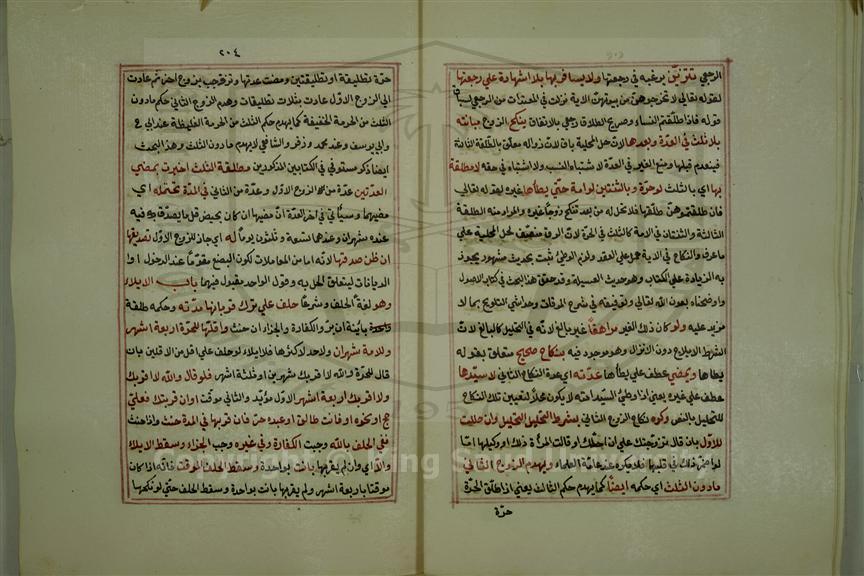 الرجعي تتزين يرغبه في رجعتها ولا يسافر بها بلا اشهاد علي رجعتها
لقوله تعالي لا تخرجوهن من بيوتهن الاية نزلت في المعتدات من الرجعي لسياق
قوله فاذا طلقتم النساء وصريح الطلاق رجعي بالاتفاق ينكح الزوج مبانته
بلا ثلث في العدة وبعدها لان حل المحلية باق لان زواله معلق بالطلقة الثالثة
فينعدم قبلها ومنع الغير في العدة لاشتباه النسب ولا اشتباه في حقه لا مطلقة
بها اي بالثلث لو حرة وبالثنتين لو امة حتي يطأها غيره لقوله تعالي
فان طلقها فلا تحل له من بعد تنكح زوجا غيره والمراد منه الطلقة
الثالثة والثنتان في الامة كالثلث في الحرة لان الرق منصف لحل المحلية علي
ما عرف والنكاح في الاية حمل علي العقد ولزم الوطئ ثبت بحديث مشهور يجوز
به الزيادة علي الكتاب وهو حديث العسيلة وقد حقق هذا البحث في كتاب الاصول
واوضحناه بعون الله تعالي وتوفيقه في شرح المرقات وحواشي التلويح بما لا
مزيد عليه ولو كان ذلك الغير مراهقا غير بالغ لانه في التحليل كالبالغ لان
الشرط الايلاج دون الانزال وهو موجود فيه بنكاح صحيح متعلق بقوله
يطأها ويمضي عطف علي يطأها عدته اي عدة النكاح الثاني لا سيدها
عطف علي غيره يعني اذا وطئ السيد امته لا يكون محللا لتعيين تلك النكاح
للتحليل بالنص وكره نكاح الزوج الثاني بشرط التحليل وان حلت
للاول بان قال تزوجتك علي ان احلك او قالت المرأة ذلك او وكيلها اما
لو اضمر ذلك في قلبها فلا يكره عند عامة العلماء ويهدم الزوج الثاني
ما دون الثلث اي حكمه ايضا كما يهدم حكم الثالث يعني اذا طلق الحرة
حرة
٢٠٤
حرة تطليقة او تطليقتين ومضت عدتها وتزوجت بزوج اخر ثم عادت
الي الزوج الاول عادت بثلاث تطليقات وهدم الزوج الثاني حكم مادون
الثلث من الحرمة الخفيفة كما يهدم حكم الثلث من الحرمة الغليظة عند ابي ح
وابي يوسف وعند محمد وزفر والشافعي لا يهدم مادون الثلث وهذ البحث
ايضا ذكر مستوفي في الكتابين المذكورين مطلقة الثلث اخبرت بمضي
العدتين عدة من الزوج الاول وعدة من الثاني في المدة تحتمله اي
مضيهما وسيأتي في اخر العدة ان مضيها ان كان بحيض فاقل ما يصدق به فيه
عنده شهران وعندهما تسعة وثلثون يوما له اي جاز للزوج الاول تصديقها
ان ظن صدقها لانه اما من المعاملات لكون البضع متقوما عند الدخول او
الديانات ليتعلق الحل به وقول الواحد مقبول فيهما باب الايلاء
وهو لغة الحلف وشرعا حلف علي ترك قربانها مدته وحكمه طلقة
بائنة ان بر والكفارة والجزاء ان حنث واقلها للحرة اربعة اشهر
وللامة شهران ولا حد لاكثرها فلا ايلاء لو حلف علي اقل من الاقلين بان
قال للحرة والله لا اقربك شهرين او ثلثة اشهر فلو قال والله لا اقربك
او لا اقربك اربعة اشهر الاول مؤبد والثاني موقت او ان قربتك فعلي
حج او نحوه او فانت طالق او عبده حر فان قربها في المدة حنث واذا حنث
ففي الحلف بالله وجبت الكفارة وفي غيره وجب الجزاء وسقط الايلاء
والا اي وان لم يقربها بانت بواحدة وسقط الحلف الموقت فانه اذا كان
موقتا باربعة اشهر ولم يقربها بانت بواحدة وسقط الحلف حتي لو نكحها
Copyright © King Saud University
1957